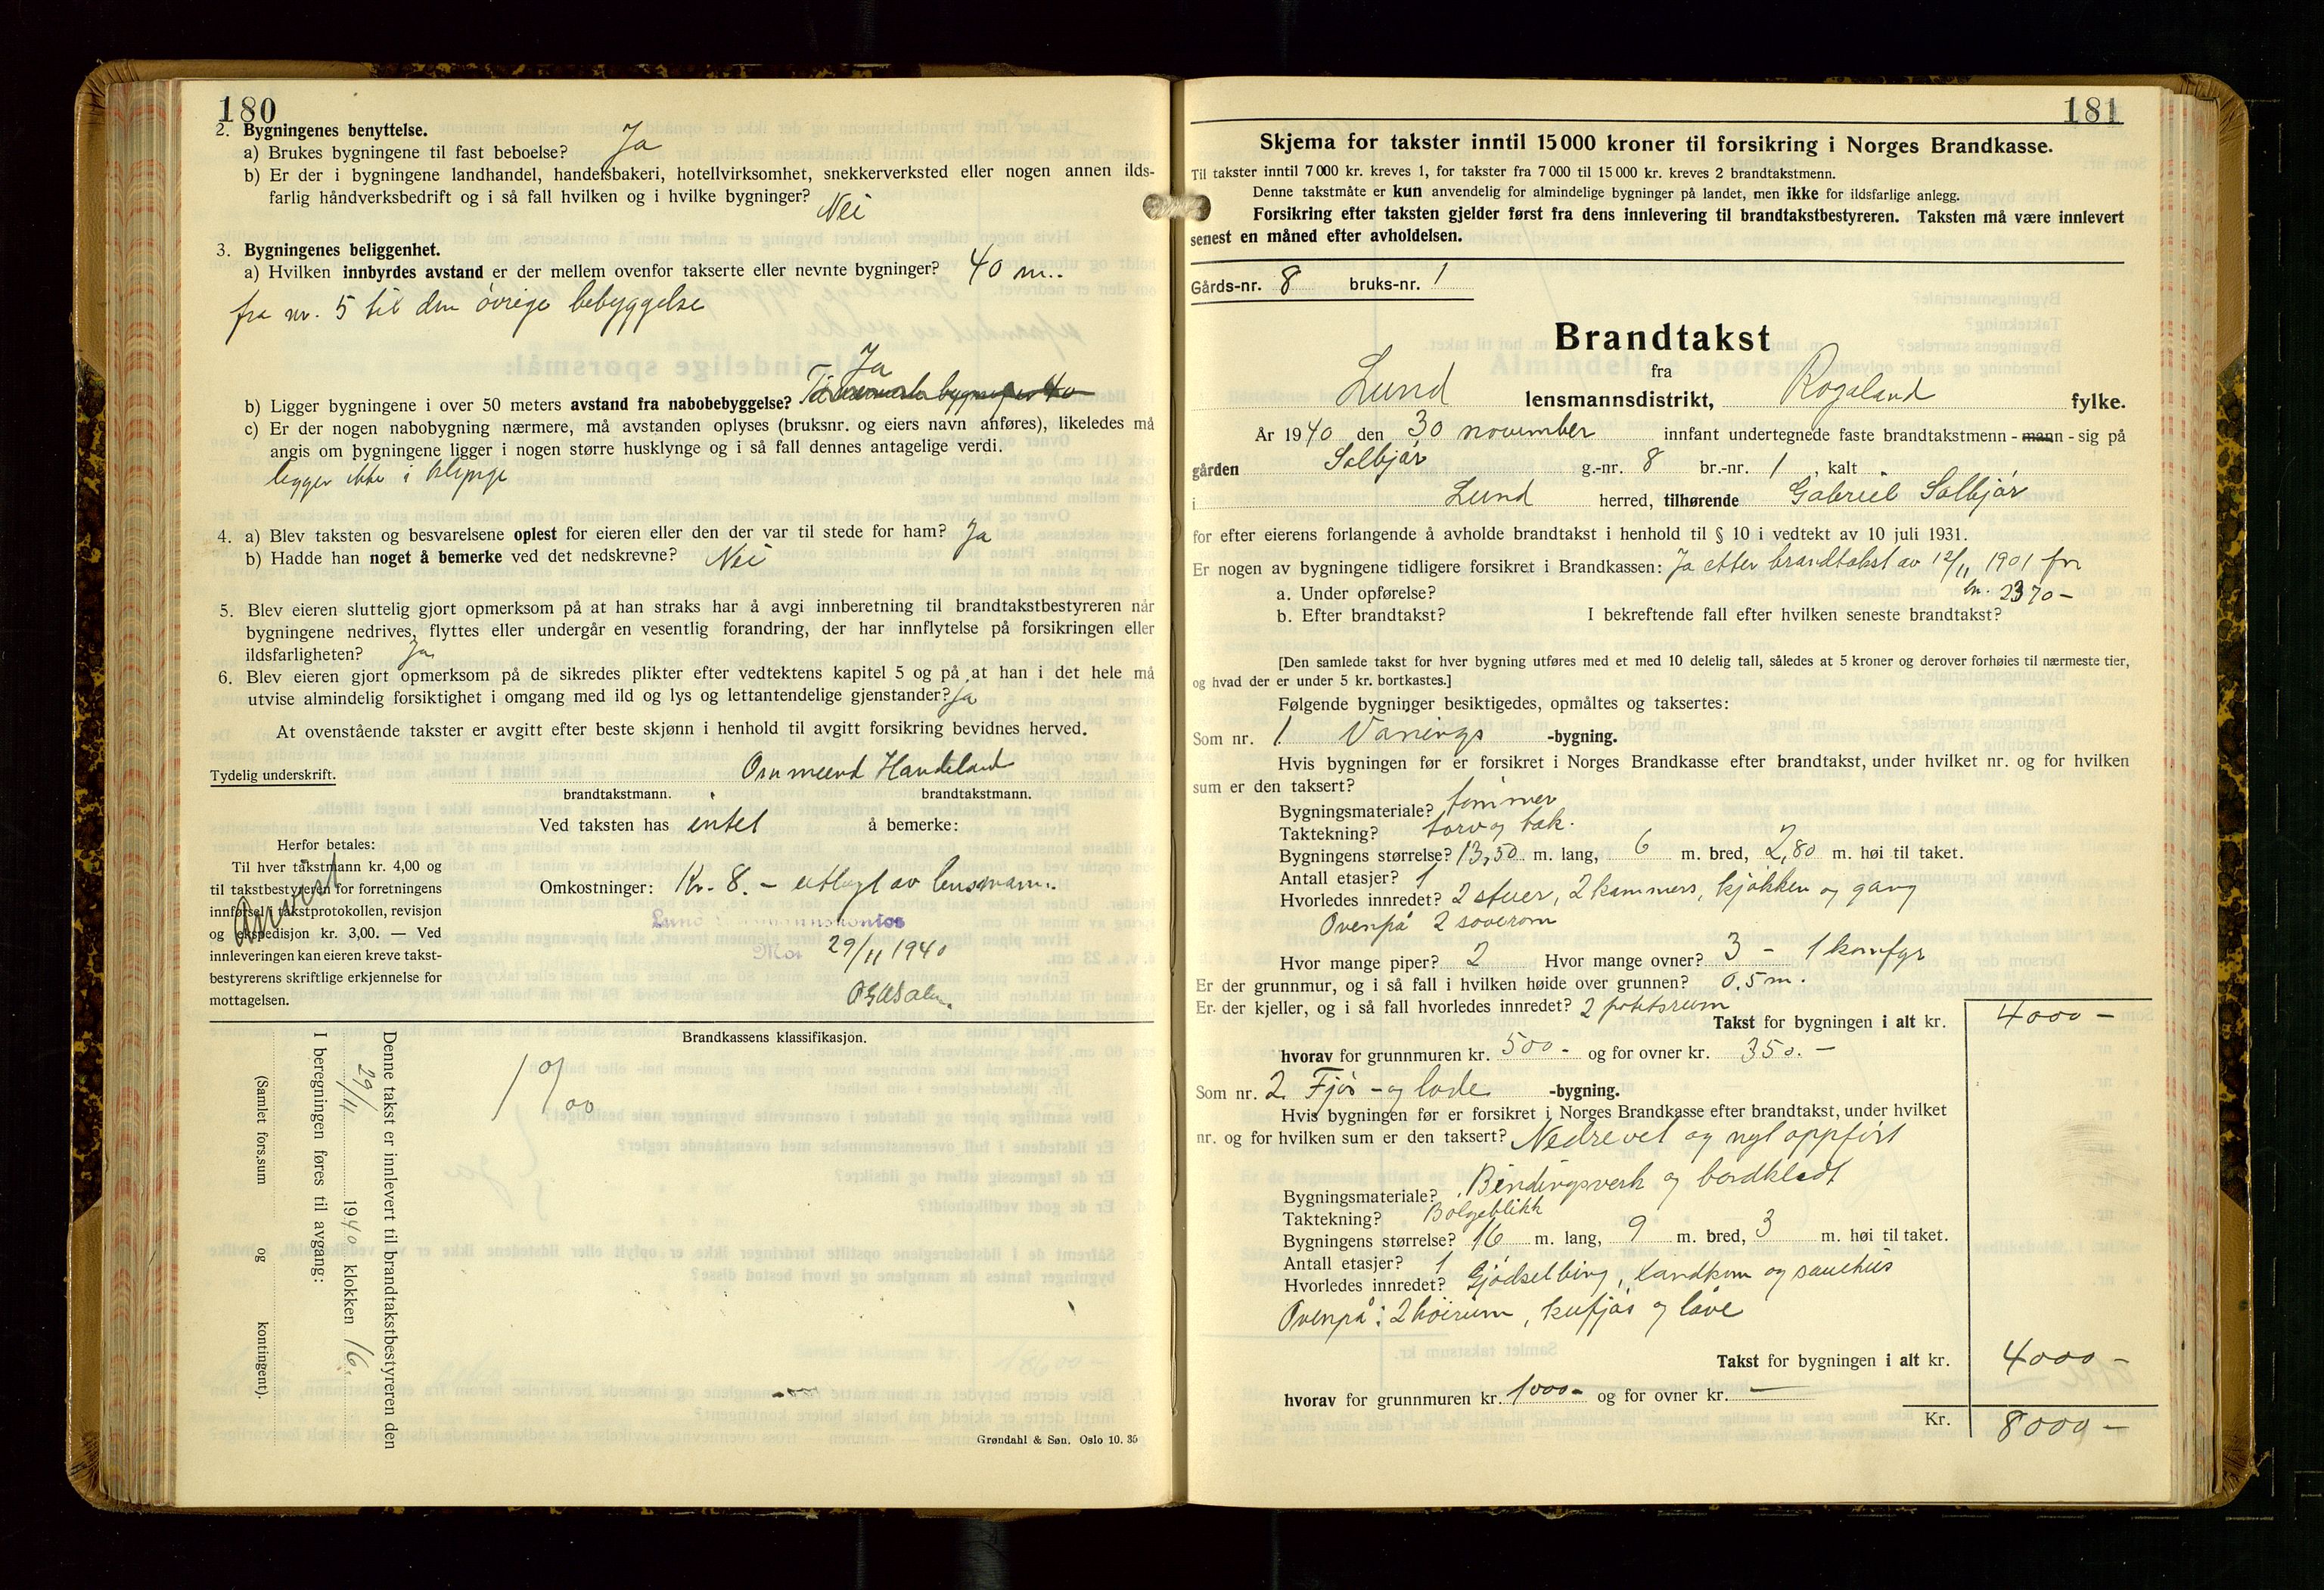 180
2. Bygningenes benyttelse.
a) Brukes bygningene til fast beboelse? Ja
b) Er der i bygningene landhandel, handelsbakeri, hotellvirksomhet, snekkerverksted eller nogen annen ilds-
farlig håndverksbedrift og i så fall hvilken og i hvilke bygninger? Nei
3. Bygningenes beliggenhet.
a) Hvilken innbyrdes avstand er der mellem ovenfor takserte eller nevnte bygninger? 40 m.
fra nr. 5 til den övrige bebyggelse
Ja
b) Ligger bygningene i over 50 meters avstand fra nabobebyggelse?
c) Er der nogen nabobygning nærmere, må avstanden oplyses (bruksnr. og eiers navn anføres), likeledes må
angis om bygningene ligger i nogen større husklynge og i så fall dennes antagelige verdi.
legger ikke i klynge
4. a) Blev taksten og besvarelsene oplest for eieren eller den der var til stede for ham? Ja
b) Hadde han noget å bemerke ved det nedskrevne? Nei
5. Blev eieren sluttelig gjort opmerksom på at han straks har å avgi innberetning til brandtakstbestyreren når
bygningene nedrives, flyttes eller undergår en vesentlig forandring, der har innflytelse på forsikringen eller
ildsfarligheten? Ja
6. Blev eieren gjort opmerksom på de sikredes plikter efter vedtektens kapitel 5 og på at han i det hele må
utvise almindelig forsiktighet i omgang med ild og lys og lettantendelige gjenstander? Ja
At ovenstående takster er avgitt efter beste skjønn i henhold til avgitt forsikring bevidnes herved.
Tydelig underskrift. Handeland
brandtakstmann. brandtakstmann.
Ved taksten has intet å bemerke:
Herfor betales:
Til hver takstmann kr. 4,00 og
til takstbestyreren for forretningens
innførsel i takstprotokollen, revisjon
og ekspedisjon kr. 3,00. — Ved
innleveringen kan eieren kreve takst-
bestyrerens skriftlige erkjennelse for
mottagelsen.
Omkostninger: Kr. 8. - utlagt av lensmann.
Lund
29/11 1940
Brandkassens klassifikasjon.
Denne takst er innlevert til brandtakstbestyreren den
29/11 1940 klokken 16
I beregningen føres til avgang:
(Samlet fors.sum og kontingent).
Grøndahl & Søn. Oslo 10. 35
181
Skjema for takster inntil 15 000 kroner til forsikring i Norges Brandkasse.
Til takster inntil 7 000 kr. kreves 1, for takster fra 7 000 til 15 000 kr. kreves 2 brandtakstmenn.
Denne takstmåte er kun anvendelig for almindelige bygninger på landet, men ikke for ildsfarlige anlegg.
Forsikring efter taksten gjelder først fra dens innlevering til brandtakstbestyreren. Taksten må være innlevert
senest en måned efter avholdelsen.
Gårds-nr. 8 bruks-nr. 1
Brandtakst
fra
Lund lensmannsdistrikt, Rogaland fylke.
År 1940 den 30 november innfant undertegnede faste brandtakstmenn - mann - sig på
gården Salbjør g.-nr. 8 br.-nr. 1, kalt
i Lund herred, tilhørende Gabriel Salbjør
for efter eierens forlangende å avholde brandtakst i henhold til § 10 i vedtekt av 10 juli 1931.
Er nogen av bygningene tidligere forsikret i Brandkassen: Ja etter brandtakst av 12/11 1901 for
kr. 2370 -
a. Under opførelse?
b. Efter brandtakst? I bekreftende fall efter hvilken seneste brandtakst?
[Den samlede takst for hver bygning utføres med et med 10 delelig tall, således at 5 kroner og derover forhøies til nærmeste tier,
og hvad der er under 5 kr. bortkastes.]
Følgende bygninger besiktigedes, opmåltes og taksertes:
Som nr. 1 Vånings -bygning.
Hvis bygningen før er forsikret i Norges Brandkasse efter brandtakst, under hvilket nr. og for hvilken
sum er den taksert?
Bygningsmateriale? tömmer
Taktekning? torv og tak.
Bygningens størrelse? 13,50 m. lang, 6 m. bred, 2,80 m. høi til taket.
Antall etasjer? 1
Hvorledes innredet? 2 stuer, 2 kammers, kjökken og gang
Ovenpå 2 soverom
Hvor mange piper? 2 Hvor mange ovner? 3 - 1 komfyr
Er der grunnmur, og i så fall i hvilken høide over grunnen? 0,5 m.
Er der kjeller, og i så fall hvorledes innredet? 2 potetsrum
Takst for bygningen i alt kr. 4000 -
hvorav for grunnmuren kr. 500 - og for ovner kr. 350. -
Som nr. 2 Fjös - og lade -bygning.
Hvis bygningen før er forsikret i Norges Brandkasse efter brandtakst, under hvilket
nr. og for hvilken sum er den taksert? Nedrevet og nyt oppfört
Bygningsmateriale? Bindingsverk og bordkledt
Taktekning? Bölgeblikk
Bygningens størrelse? 16 m. lang, 9 m. bred, 3 m. høi til taket.
Antall etasjer? 1
Hvorledes innredet? Gjödselbing, landkum og sauehus
Ovenpå: 2 höirum, kufjös og låve
Takst for bygningen i alt kr. 4000 -
hvorav for grunnmuren kr. 1000 - og for ovner kr. —
Kr. 8000 -